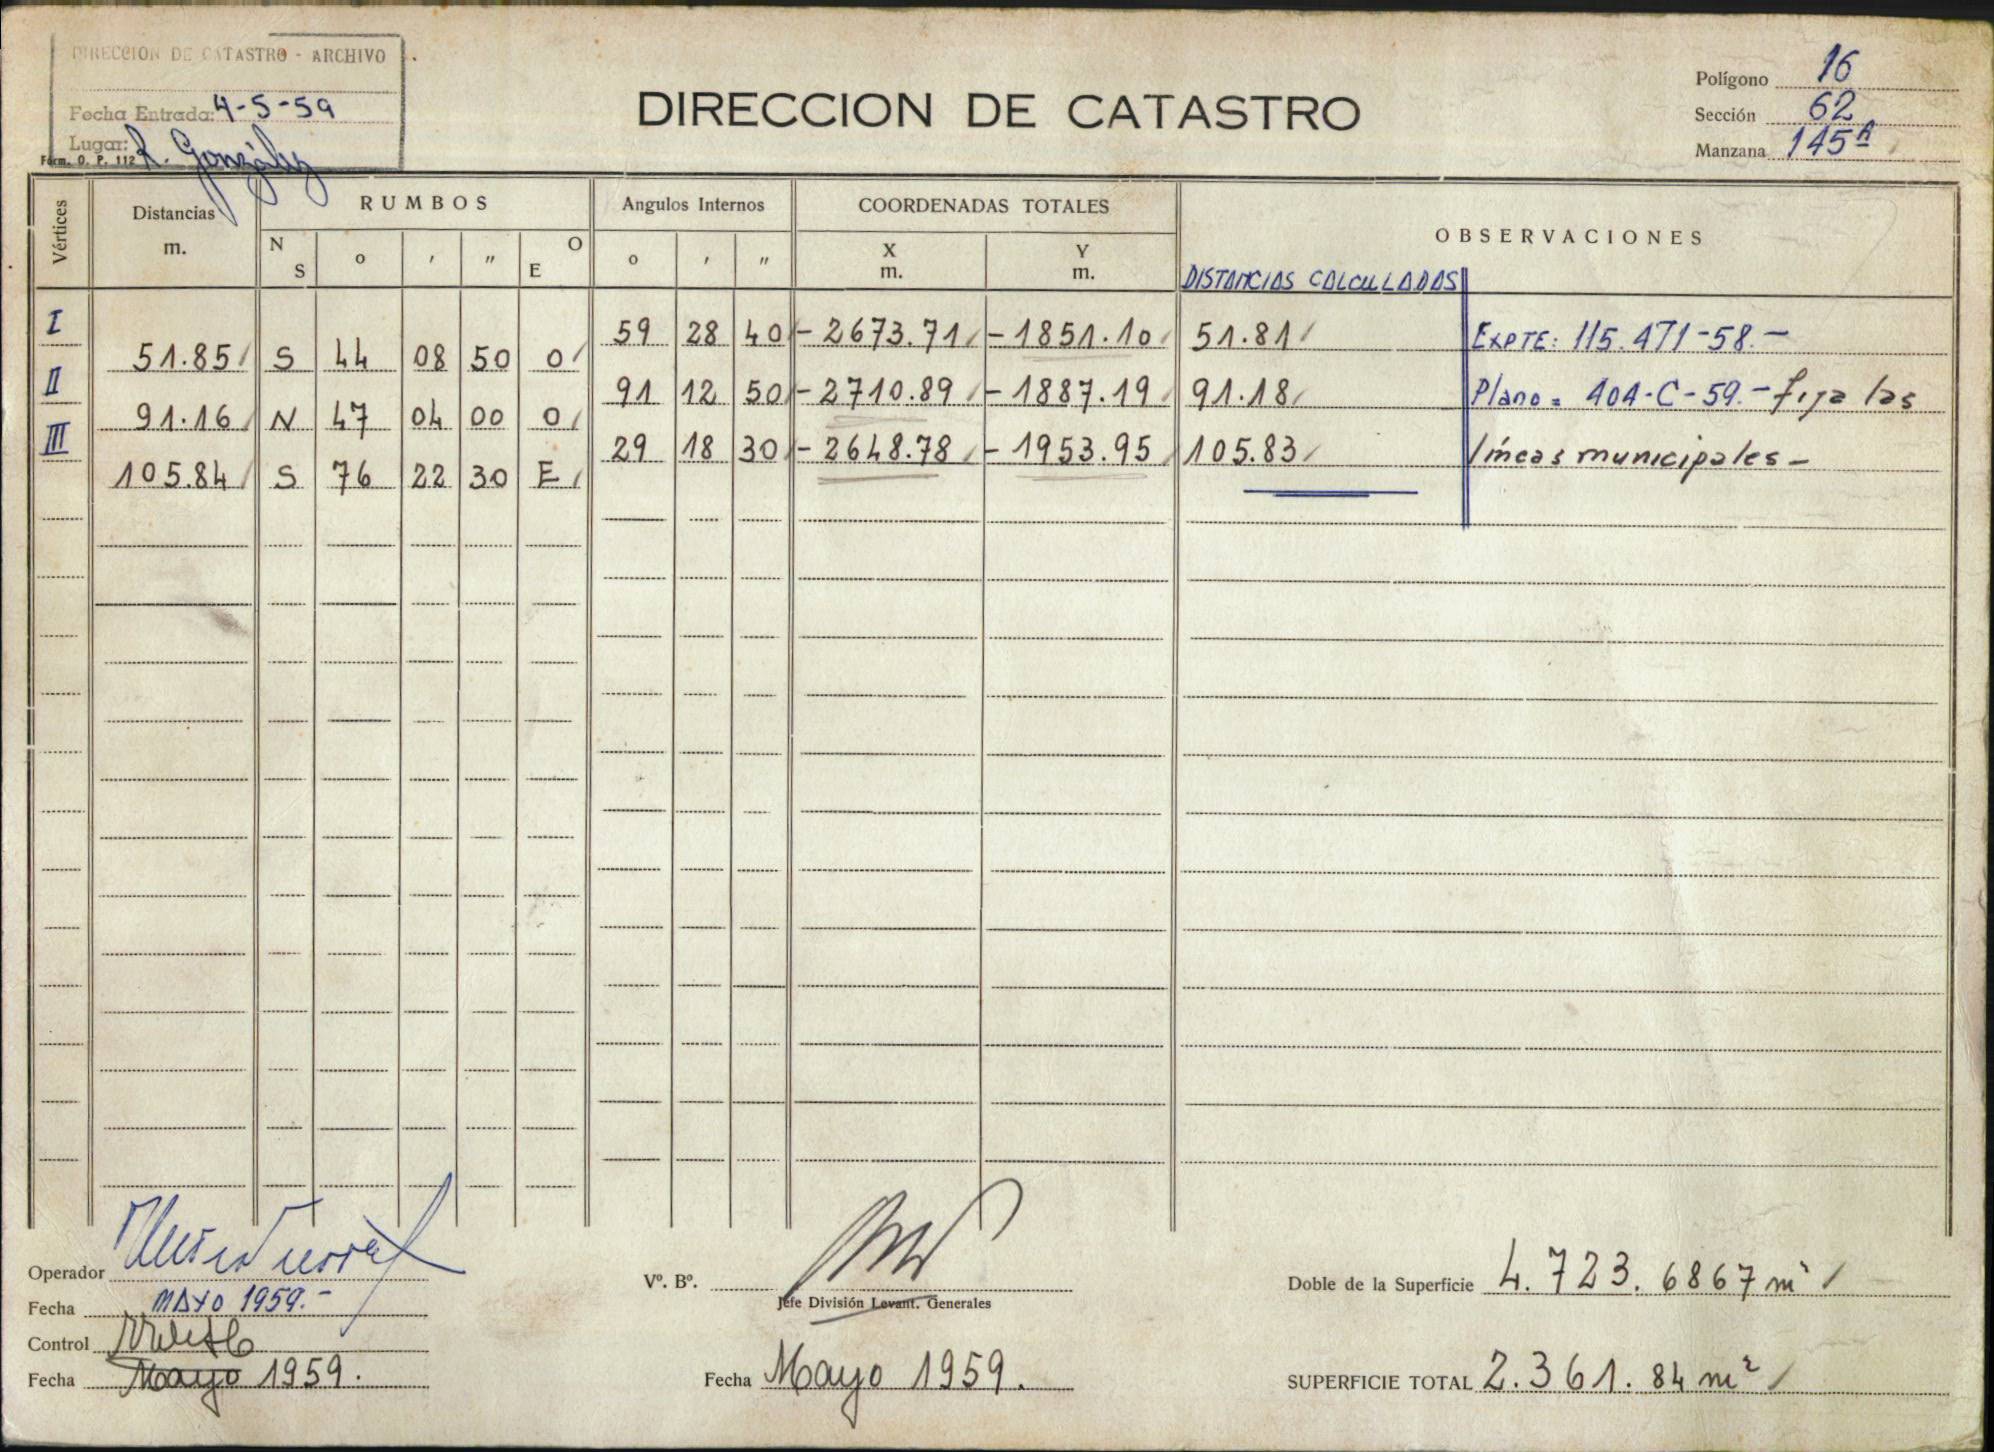 DIRECCION DE CATASTRO - ARCHIVO
Fecha Entrada: 4-5-59
Lugar: R. González
Form. O. P. 112
DIRECCION DE CATASTRO
Polígono 16
Sección 62
Manzana 145A
Vértices Distancias m. RUMBOS Angulos Internos COORDENADAS TOTALES OBSERVACIONES
N S o ' " E O o ' " X m. Y m.
DISTANCIAS CALCULADAS
I 59 28 40 - 2673.71 - 1851.10 51.81 EXPTE: 115.471-58.-
51.85 S 44 08 50 O
II 91 12 50 - 2710.89 - 1887.19 91.18 Plano = 404-C-59.- fija las
91.16 N 47 04 00 O
III 29 18 30 - 2648.78 - 1953.95 105.83 líneas municipales -
105.84 S 76 22 30 E
Operador
Fecha MAYO 1959.-
Control
Fecha Mayo 1959.
Vº. Bº.
Jefe División Levant. Generales
Fecha Mayo 1959.
Doble de la Superficie 4.723.6867 m²
SUPERFICIE TOTAL 2.361.84 m²